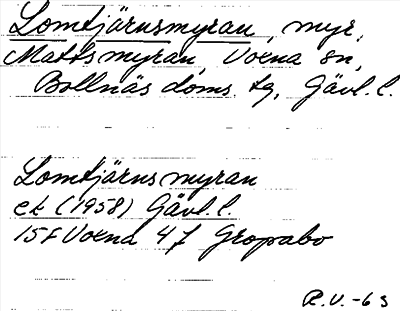 Lomtjärnsmyran, myr,
Mattsmyran, Voxna sn,
Bollnäs doms. tg, Gävl. l.
Lomtjärnsmyran
ek (1958) Gävl. l.
15F Voxna 4f Gropabo
R.V. -63